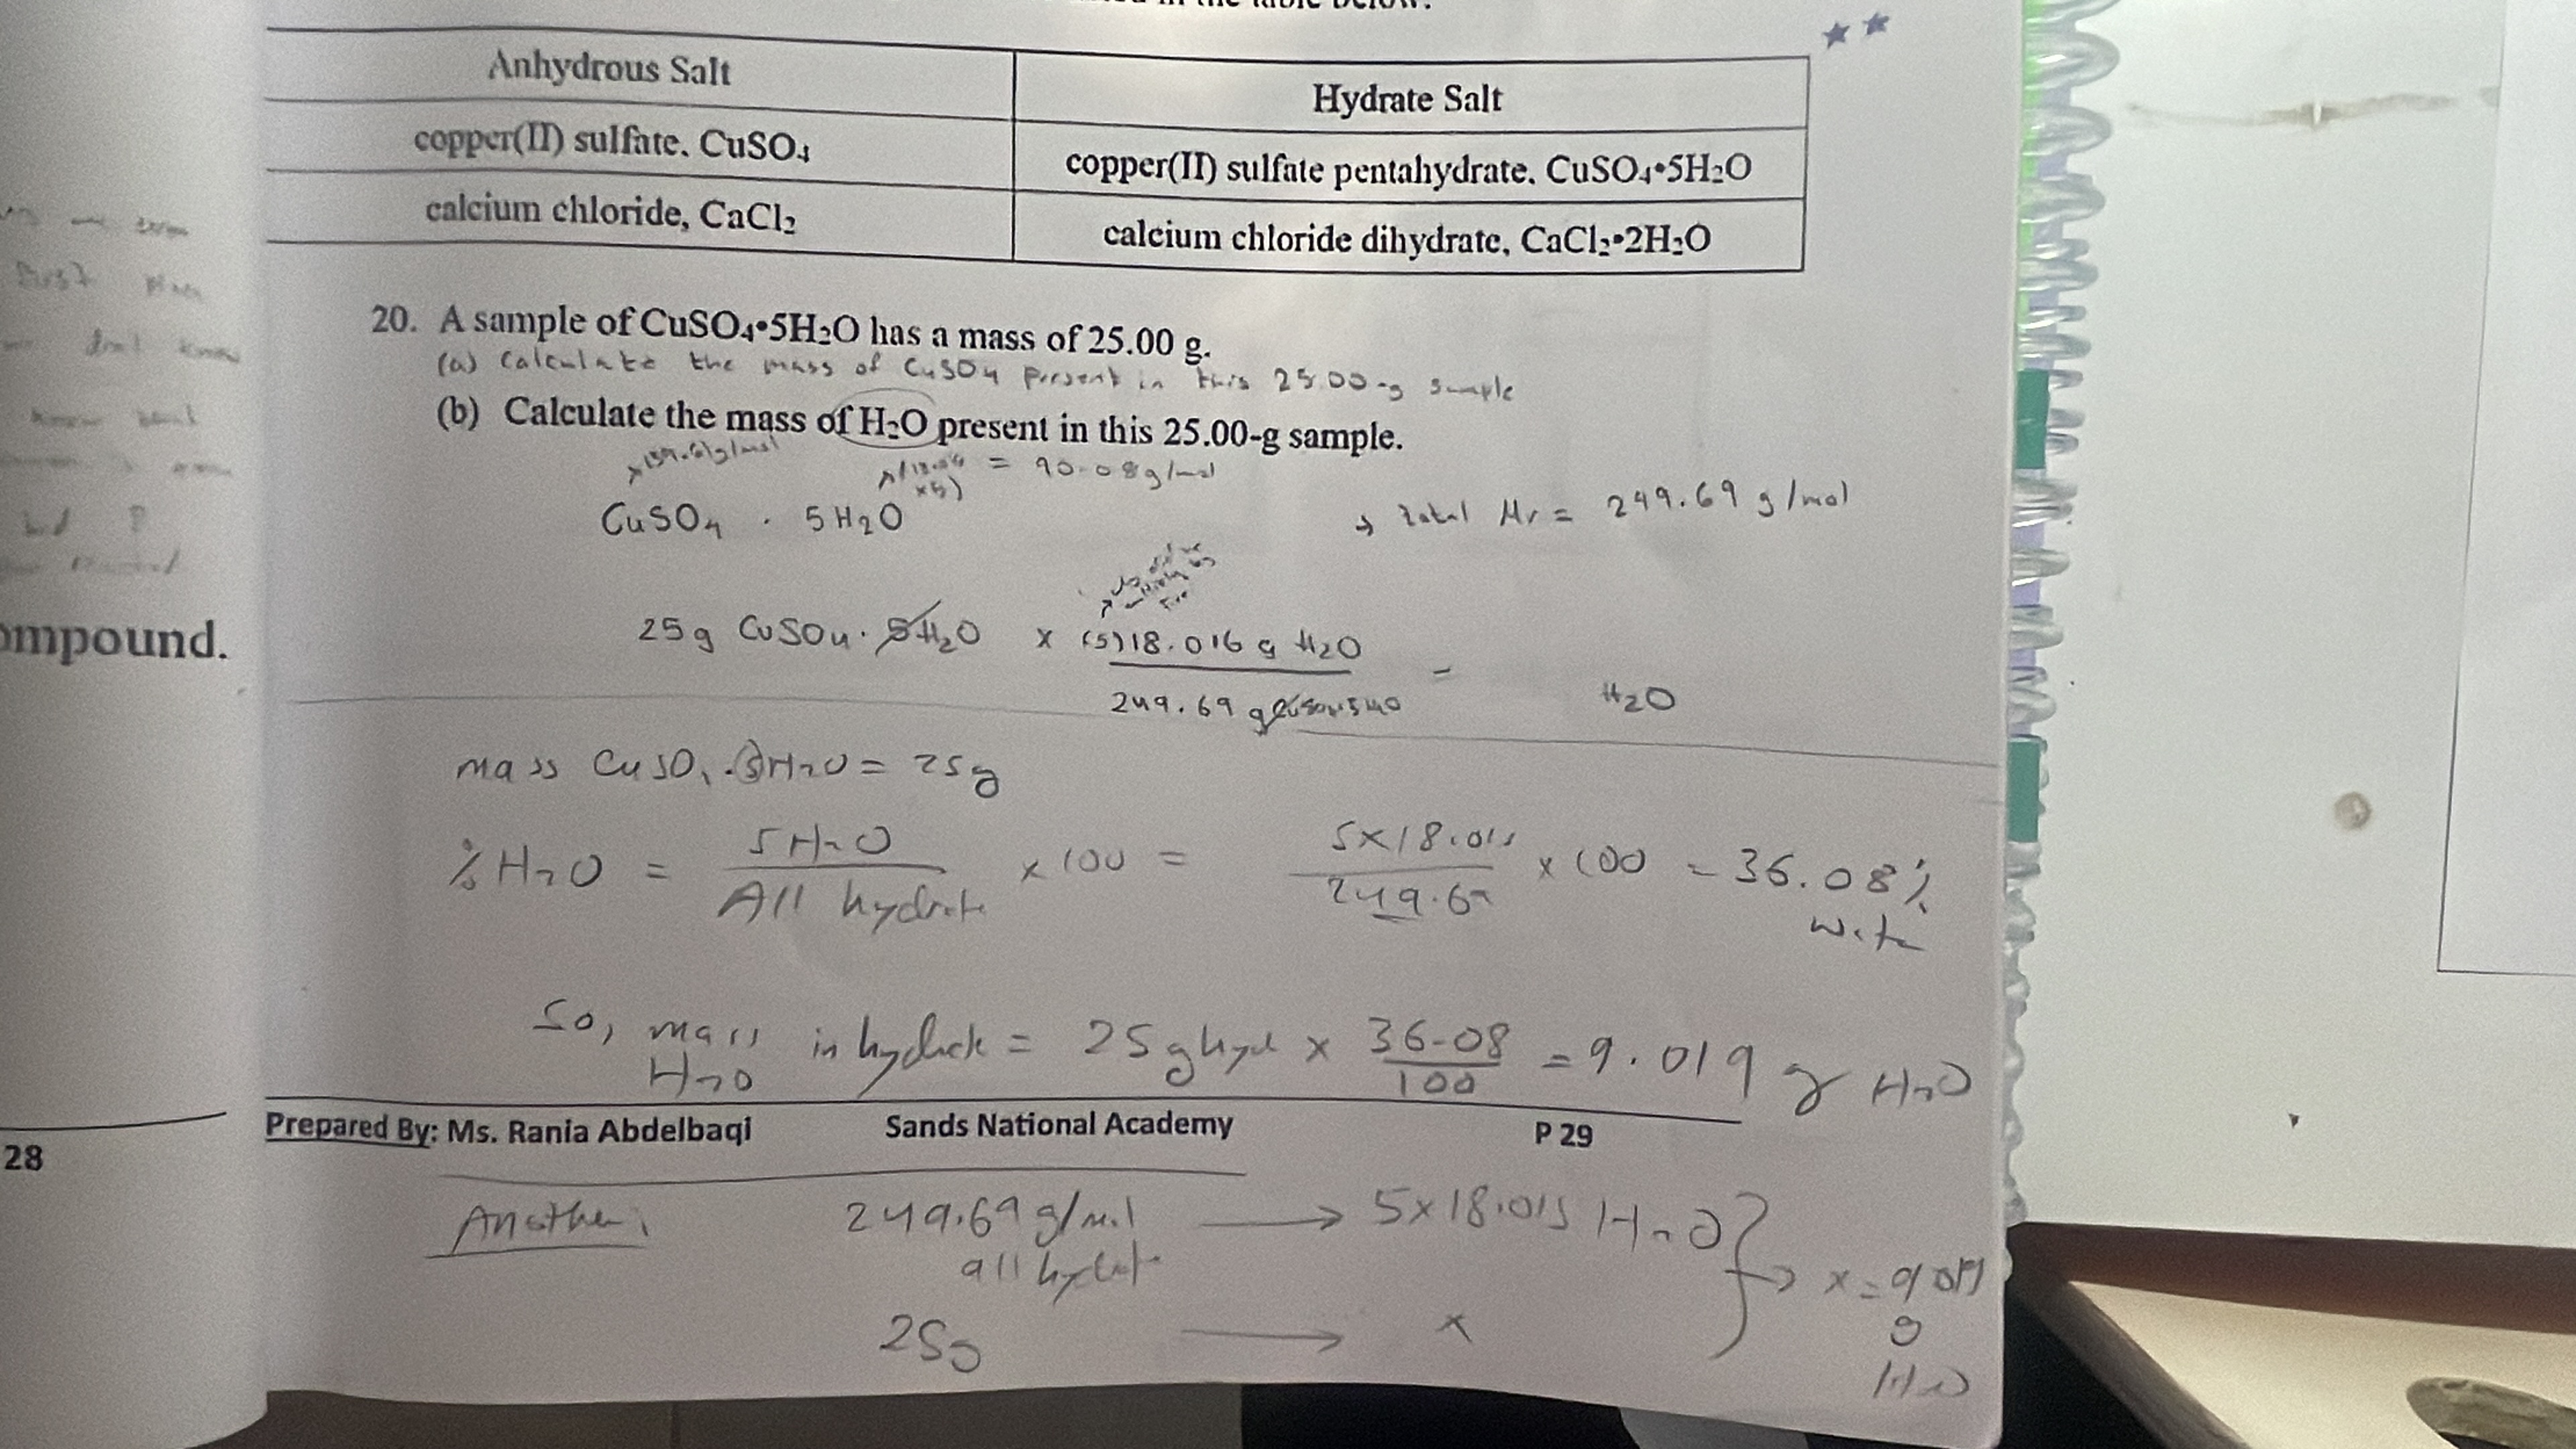 in the table below.
Anhydrous Salt
Hydrate Salt
copper(II) sulfate, CuSO₄
copper(II) sulfate pentahydrate, CuSO₄•5H₂O
calcium chloride, CaCl₂
calcium chloride dihydrate, CaCl₂•2H₂O
20. A sample of CuSO₄•5H₂O has a mass of 25.00 g.
(a) Calculate the mass of CuSO₄ present in this 25.00-g sample
(b) Calculate the mass of H₂O present in this 25.00-g sample.
159.61g/mol
x5) = 90.08g/mol
CuSO₄ . 5H₂O
→ total Mr = 249.69 g/mol
25g CuSO₄. 5H₂O x (5)18.016 g H₂O =
249.69 g CuSO₄.5H₂O
H₂O
mass CuSO₄.5H₂O = 25g
% H₂O = 5H₂O x 100 = 5x18.015 x 100 = 36.08%
All hydrate 249.69
So, mass in hydrate = 25g hyd x 36.08 = 9.019 g H₂O
H₂O 100
Prepared By: Ms. Rania Abdelbaqi Sands National Academy P 29
Another: 249.69 g/mol → 5x18.015 H₂O
all hydrate
25g → x
x = 9.019
g
H₂O
know
ompound.
28